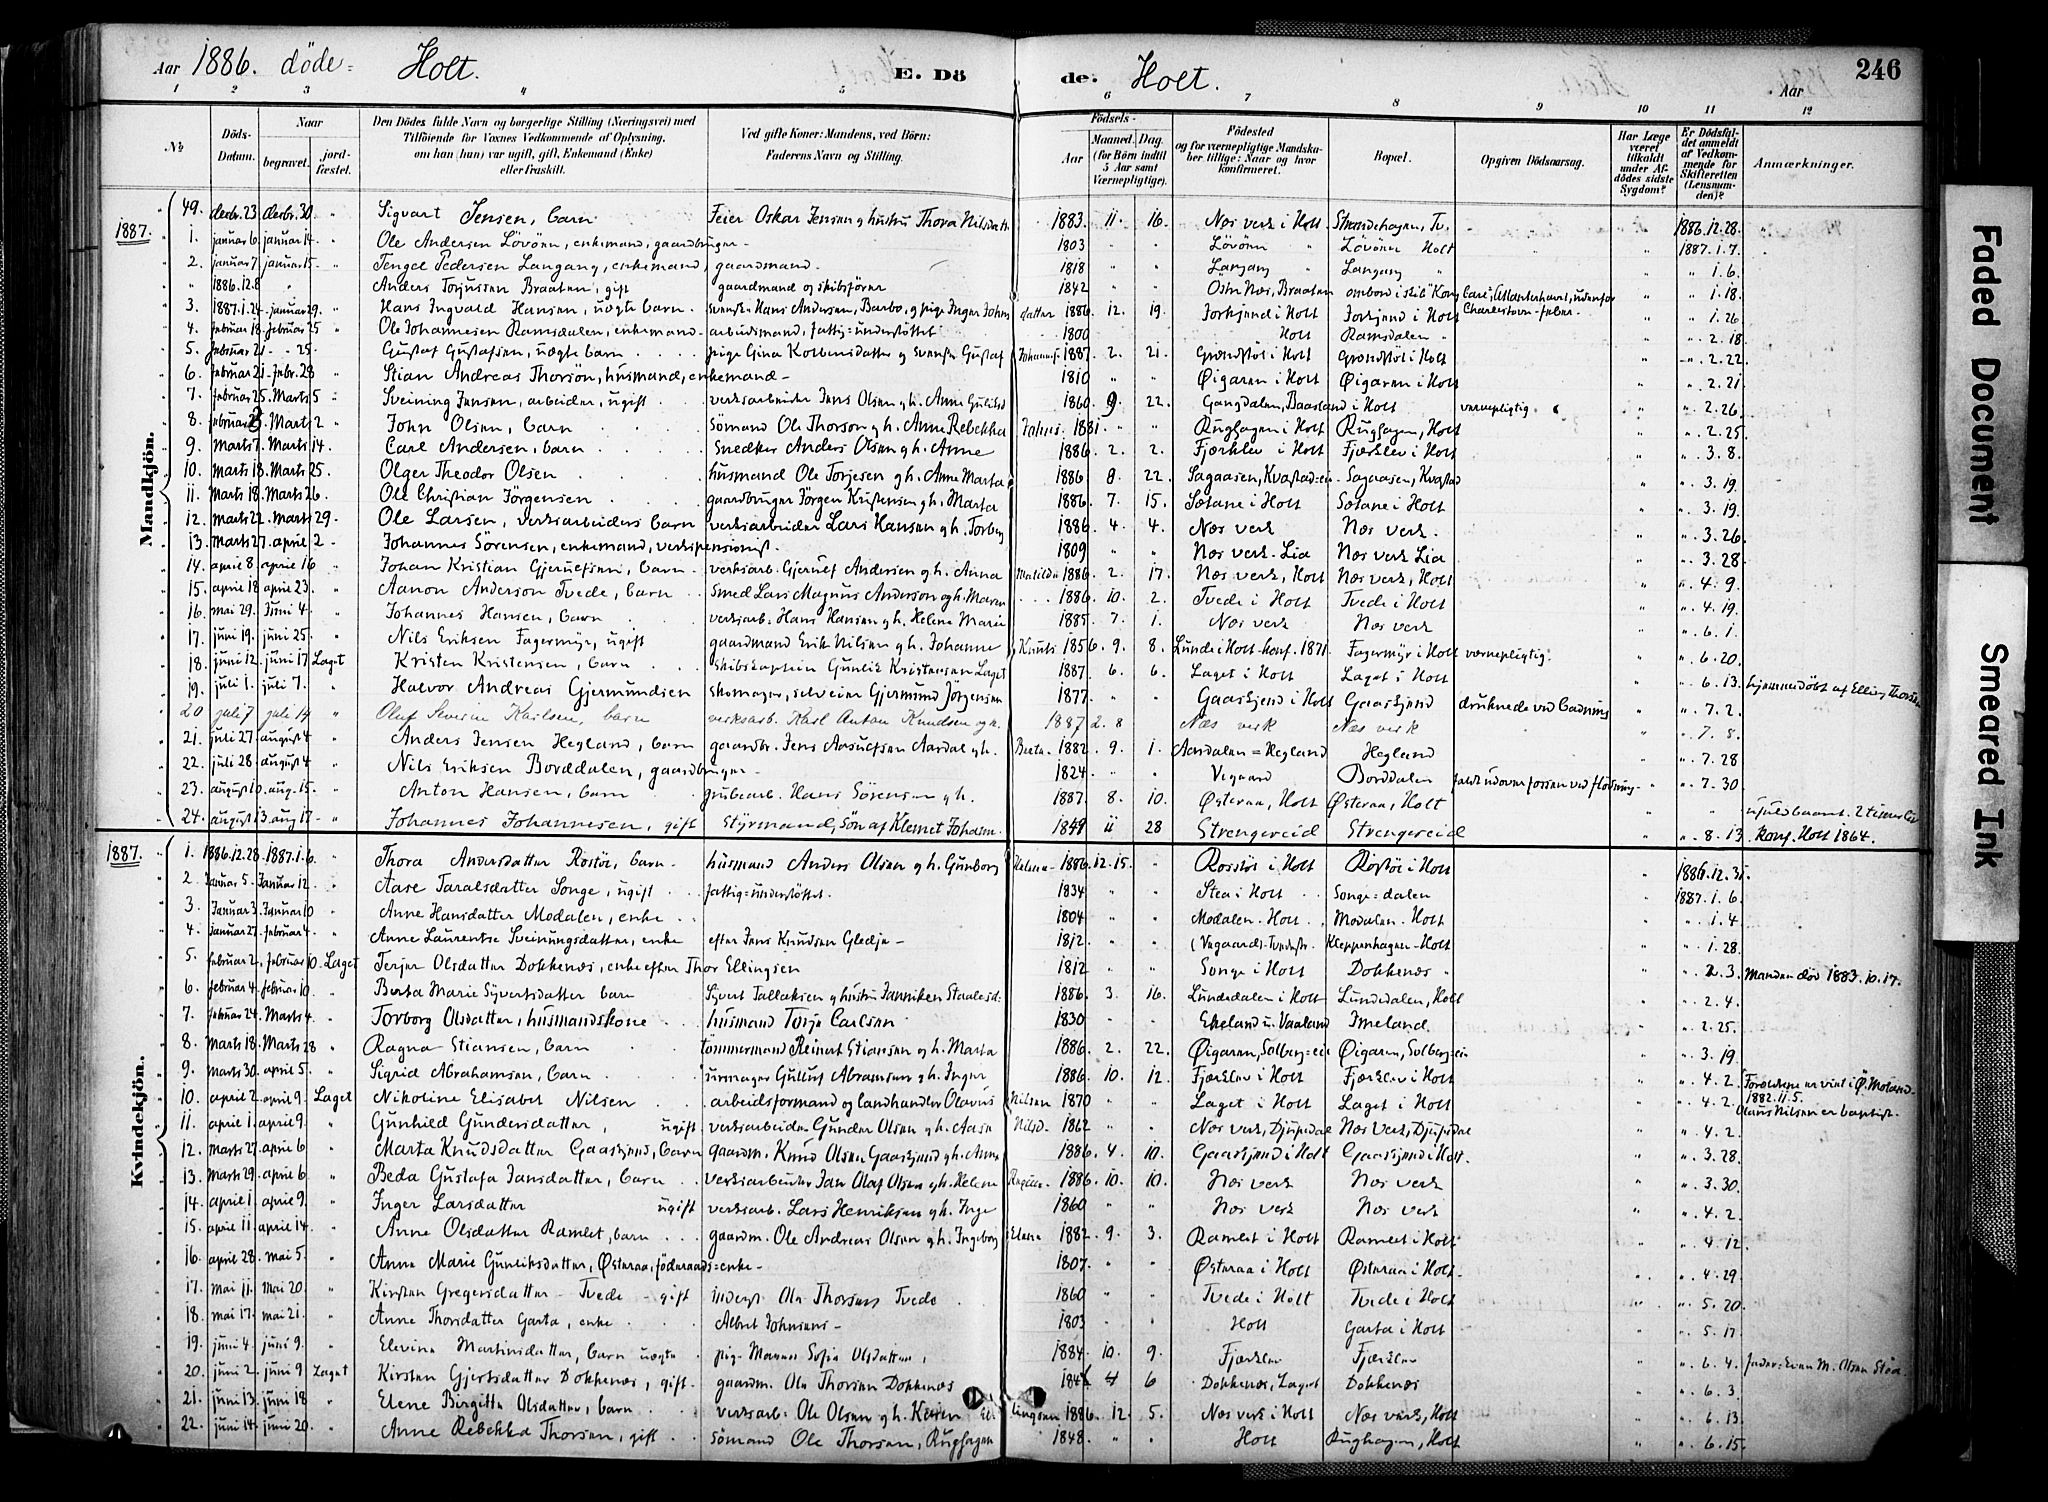 Aar 1886. döde= Holt. E. Dö de. Holt. Aar 246
1 2 3 4 5 6 7 8 9 10 11 12
No
Döds-Datum.
Naar
begravet.
jord-fæstet.
Den Dödes fulde Navn og borgerlige Stilling (Næringsvei) med
Tilföiende for Voxnes Vedkommende af Oplysning,
om han (hun) var ugift, gift, Enkemand (Enke)
eller fraskilt.
Ved gifte Koner: Mandens, ved Börn:
Faderens Navn og Stilling.
Födsels-
Aar
Maaned. Dag.
(for Börn indtil
5 Aar samt
Værnepligtige).
Födested
og for værnepligtige Mandska-
ber tillige: Naar og hvor
konfirmeret.
Bopæl.
Opgiven Dödsaarsag.
Har Læge
været
tilkaldt
under Af-
dödes sidste
Sygdom?
Er Dödsfal-
det anmeldt
af Vedkom-
mende for
Skifteretten
(Lensman-
den)?
Anmærkninger.
Mandkjön.
49. decbr. 23 decbr. 30 " Sigvart Jensen, barn Feier Oskar Jensen og hustru Thora Nilsdatter 1883 11. 16. Næs verk i Holt Strandehagen, Tv. 1886.12.28.
1887. 1. januar 6. januar 14. " Ole Andersen Lövönn, enkemand, gaardbruger 1803 " " Lövönn " Lövönn Holt 1887.1.7.
2. januar 7 januar 15. " Tengel Pedersen Langang, enkemand, gaardmand. 1818 " " Langang " Langang " " 1.6.
" 1886.12.8 " " Anders Torjussen Braaten, gift gaardmand og skibsförer 1842 " " Östr Næs, Braaten ombord i skib "Kong Carl", Atlanterhavet, udenfor Charlestown - feber. " 1.18.
3. 1887.1.24 januar 29. " Hans Ingvald Hansen, uægte barn Hans Andersen, Barbo, og pige Inger Johns datter 1886 12. 19. i Holt i Holt " 1.26
4. februar 18. februar 25 " Ole Johannesen Ramsdalen, enkemand arbeidsmand, fattig=understöttet 1800 Holt Ramsdalen " " 2.18.
5. februar 21 - 25. " Gustaf Gustafsen, uægte barn pige Gina Kolbensdatter og Svensk Gustaf 1887. 2. 21. Gröndstöl i Holt Gröndstöl i Holt " 2.22.
6. februar 21 - febr. 28 " Stian Andreas Thorsön, husmand, enkemand 1810 " " Øigaren i Holt Øigaren i Holt " 2.21.
7. februar 25. Marts 5 " Sveining Jensen, arbeider, ugift verksarbeider Jens Olsen og h. Anne 1860. 9 22. Gangdalen, Baasland i Holt værnepligtig " 2.26.
8. februar Mart 2 " John Olsen, barn Sömand Ole Thorson og h. Anne Rebekka 1881. " " Rughagen i Holt Rughagen, Holt " 2.25.
9. Marts 7. Marts 14. Carl Andersen, barn Snedker Anders Olsen og h. Anne 1886. 2. 2. Fjærklev i Holt Fjærklev i Holt " 3.8.
10. Marts 18. Marts 25. Olger Theodor Olsen husmand Ole Torjesen og h. Anne Marta 1886 8 22. Sagaasen, Kvastad=ei Sagaasen, Kvastad " 3.19
11. Marts 18. Marts 26. Ole Christian Jörgensen gaardbruger Jörgen Kristensen og h. Marta 1886. 7. 15. Sætane i Holt Sætane i Holt " 3.19.
12. marts 22. Marts 29. Ole Larsen, verksarbeiders barn verksarbeider Lars Hansen og h. Torberg 1886. 4. 4. Næs verk Næs verk. " 3.26.
13. marts 27. april 2 Johannes Sörensen, enkemand, verkspensionist. 1809 " " Næs verk. Lia Næs verk Lia " 3.28.
14. april 8 april 16 Johan Kristian Gjerulfsen, barn verksarb. Gjerulf Andersen og h. Anna Matilda 1886. 2. 17. Næs verk, Holt Næs verk, Holt " 4.9
15. april 18 april 23. Aanon Anderson Tvede, barn Smed Lars Magnus Anderson og h. Maren 1886. 10. 2. Tvede i Holt Tvede i Holt " 4.19.
16. mai 29. Juni 4. Johannes Hansen, barn verksarb. Hans Hansen og h. Helene Marie 1885. 7. 1. Næs verk Næs verk " 6.1.
17. juni 19. juni 25. Nils Eriksen Fagermyr, ugift gaardmand Erik Nilsen og h. Johanne Knuts 1856. 9. 8. Lunde i Holt konf. 1871 Fagermyr i Holt værnepligtig. " 6.20.
18. juni 12. juni 17 Laget Kristen Kristensen, barn Skibskaptein Gunlik Kristensen Laget 1887. 6 6. Laget i Holt Laget i Holt " 6.13. hjemmedöbt af
19. juli 1. juli 7. Halvor Andreas Gjermundsen skomager, selveier Gjermund Jörgensen 1877. " " Gaaskjend i Holt Gaaskjend druknede ved badning " 7.2.
20 juli 7 juli 14 " Oluf Severin Karlsen, barn verksarb. Karl Anton Knudsen og h. 1887 2. 8 Næs verk Næs verk " 7.8.
21. juli 27. august 4 Anders Jensen Hegland, barn gaardbr. Jens Aasulfsen Aardal og h. Berta 1882. 9. 1. Aardalen = Hegland Hegland " 7.28
22. juli 28. august 4 Nils Eriksen Borddalen, gaardbruger 1824 " " Vegaard Borddalen faldt udover fossen ved flödning " 7.30
23. august 10. aug. 15. Anton Hansen, barn grubearb. Hans Sörensen og h. 1887. 8. 10. Østeraa, Holt Østeraa, Holt
24. august 13. aug 17. Johannes Johannesen, gift Styrmand, Sön af Klemet Johann. 1849 11 28 Strengereid Strengereid " 8.13. Konf. Holt 1864.
Kvindekjön.
1887. 1. 1886.12.28. 1887.1.6. Thora Andersdatter Rostöl, barn husmand Anders Olsen og h. Gunborg 1886. 12. 15. Rosstöl i Holt Rosstöl i Holt 1886.12.31.
2. Januar 5. Januar 12. Aase Taralsdatter Songe, ugift fattig=understöttet. 1834 " " Stea i Holt Songe=dalen 1887.1.6.
3. Januar 3. Januar 10 Anne Hansdatter Modalen, enke 1804 " " Modalen. Holt Modalen. Holt " 1.4
4. januar 27. februar 4. Anne Laurentse Sveinungsdatter, enke efter Jens Knudsen Gledje 1812. " " (Vegaard) Kleppenhagen - Holt " 1.28.
5. februar 2. februar 10. Laget Terjer Olsdatter Dokkenæs, enke efter Thor Ellingsen 1812 " " Songe i Holt Dokkenæs " " 2.3. Manden död 1883.10.17.
6. februar 4. februar 10. Berta Marie Syvertsdatter barn Syvert Tallaksen og hustru Janniken Staalesd. 1886. 3. 16. Lundedalen i Holt Lundedalen, Holt " 2.4.
7. februar 24. Marts 4. Torborg Olsdatter, husmandskone husmand Terje Carlsen 1830 " " Ekeland u. Vaaland Imeland. " 2.25.
8. Marts 18. Marts 28 Ragna Stiansen, barn tömmermand Reinert Stiansen og h. Marta 1886. 2. 22. Øigaren, Solberg=ei Øigaren, Solberg=ei " 3.19
9. marts 30. april 5. Sigrid Abrahamsen, barn urmager Abramsen og h. Inger 1886. 10. 12. Fjærklev i Holt Fjærklev i Holt " 4.2. Forældrene er viet i Ø. Moland 1882.11.5.
10. april 2. april 9. Laget Nikoline Elisabet Nilsen arbeidsformand og landhandler Olavus Nilsen 1870 " " Laget i Holt Laget i Holt " 4.2. Olaus Nilsen er baptist.
11. april 1. april 9. Gunhild Gundersdatter, ugift verksarbeider Gunder Olsen og h. Aase Nilsd. 1862 " " Næs verk, Djupedal Næs verk, Djupedal " 4.2.
12. marts 27. april 6 Marta Knudsdatter Gaaskjend, barn gaardm. Knud Olsen Gaaskjend og h. Anne 1886. 4. 10. Gaaskjend i Holt Gaaskjend i Holt. " 3.28.
13. marts 29. april 6 Beda Gustafa Jansdatter, barn verksarbeider Jan Olaf Olsen og h. Helene 1886. 10. 10. Næs verk Næs verk " 3.30.
14. april 1. april 9. Inger Larsdatter ugift verksarb. Lars Henriksen og h. Inge 1860 " " Næs verk Næs verk " 4.2.
15. april 11. april 14. Anne Olsdatter Ramlet, barn gaardm. Ole Andreas Olsen og h. Ingeborg 1882. 9. 3. Ramlet i Holt Ramlet i Holt " 4.12.
16. april 28. mai 5. Anne Marie Gunliksdatter, Østeraa, föderaads=enke 1807. " " Østeraa i Holt Østeraa i Holt " 4.29
17. mai 11. mai 20. Kirsten Gregersdatter Tvede - gift inderst. Ole Thorsen Tvede 1860 " " Tvede i Holt Tvede i Holt " 5.20
18. mai 17. mai 21. Anne Thorsdatter Garta, enke Albret Johnsens 1803 " " Holt Garta i Holt " 5.17
19. juni 4. juni 9. Elevine Martinsdatter, barn uægte pige Maren Sofie Olsdatter, 1884. 10. 9. Fjærklev Fjærklev " 6.4. fader: Even M. Olsen Stea.
20. juni 2. juni 9 Laget Kirsten Gjertsdatter Dokkenæs, gift gaardm. Ole Thorsen Dokkenæs 4 6 Dokkenæs, Laget Dokkenæs " 6.3.
21. juni 13. juni 18 Elene Birgitte Olsdatter, barn verksarb. Ole Olsen og h. Karen Ellingsen 1886. 12. 5. Næs verk i Holt Næs verk, Holt " 6.13
22. juni 14. juni 20. Anne Rebekka Thorsen, gift sömand Ole Thorsen, Rughagen 1848. " " Holt Rughagen, Holt " 6.15.
Faded Document
Smeared Ink